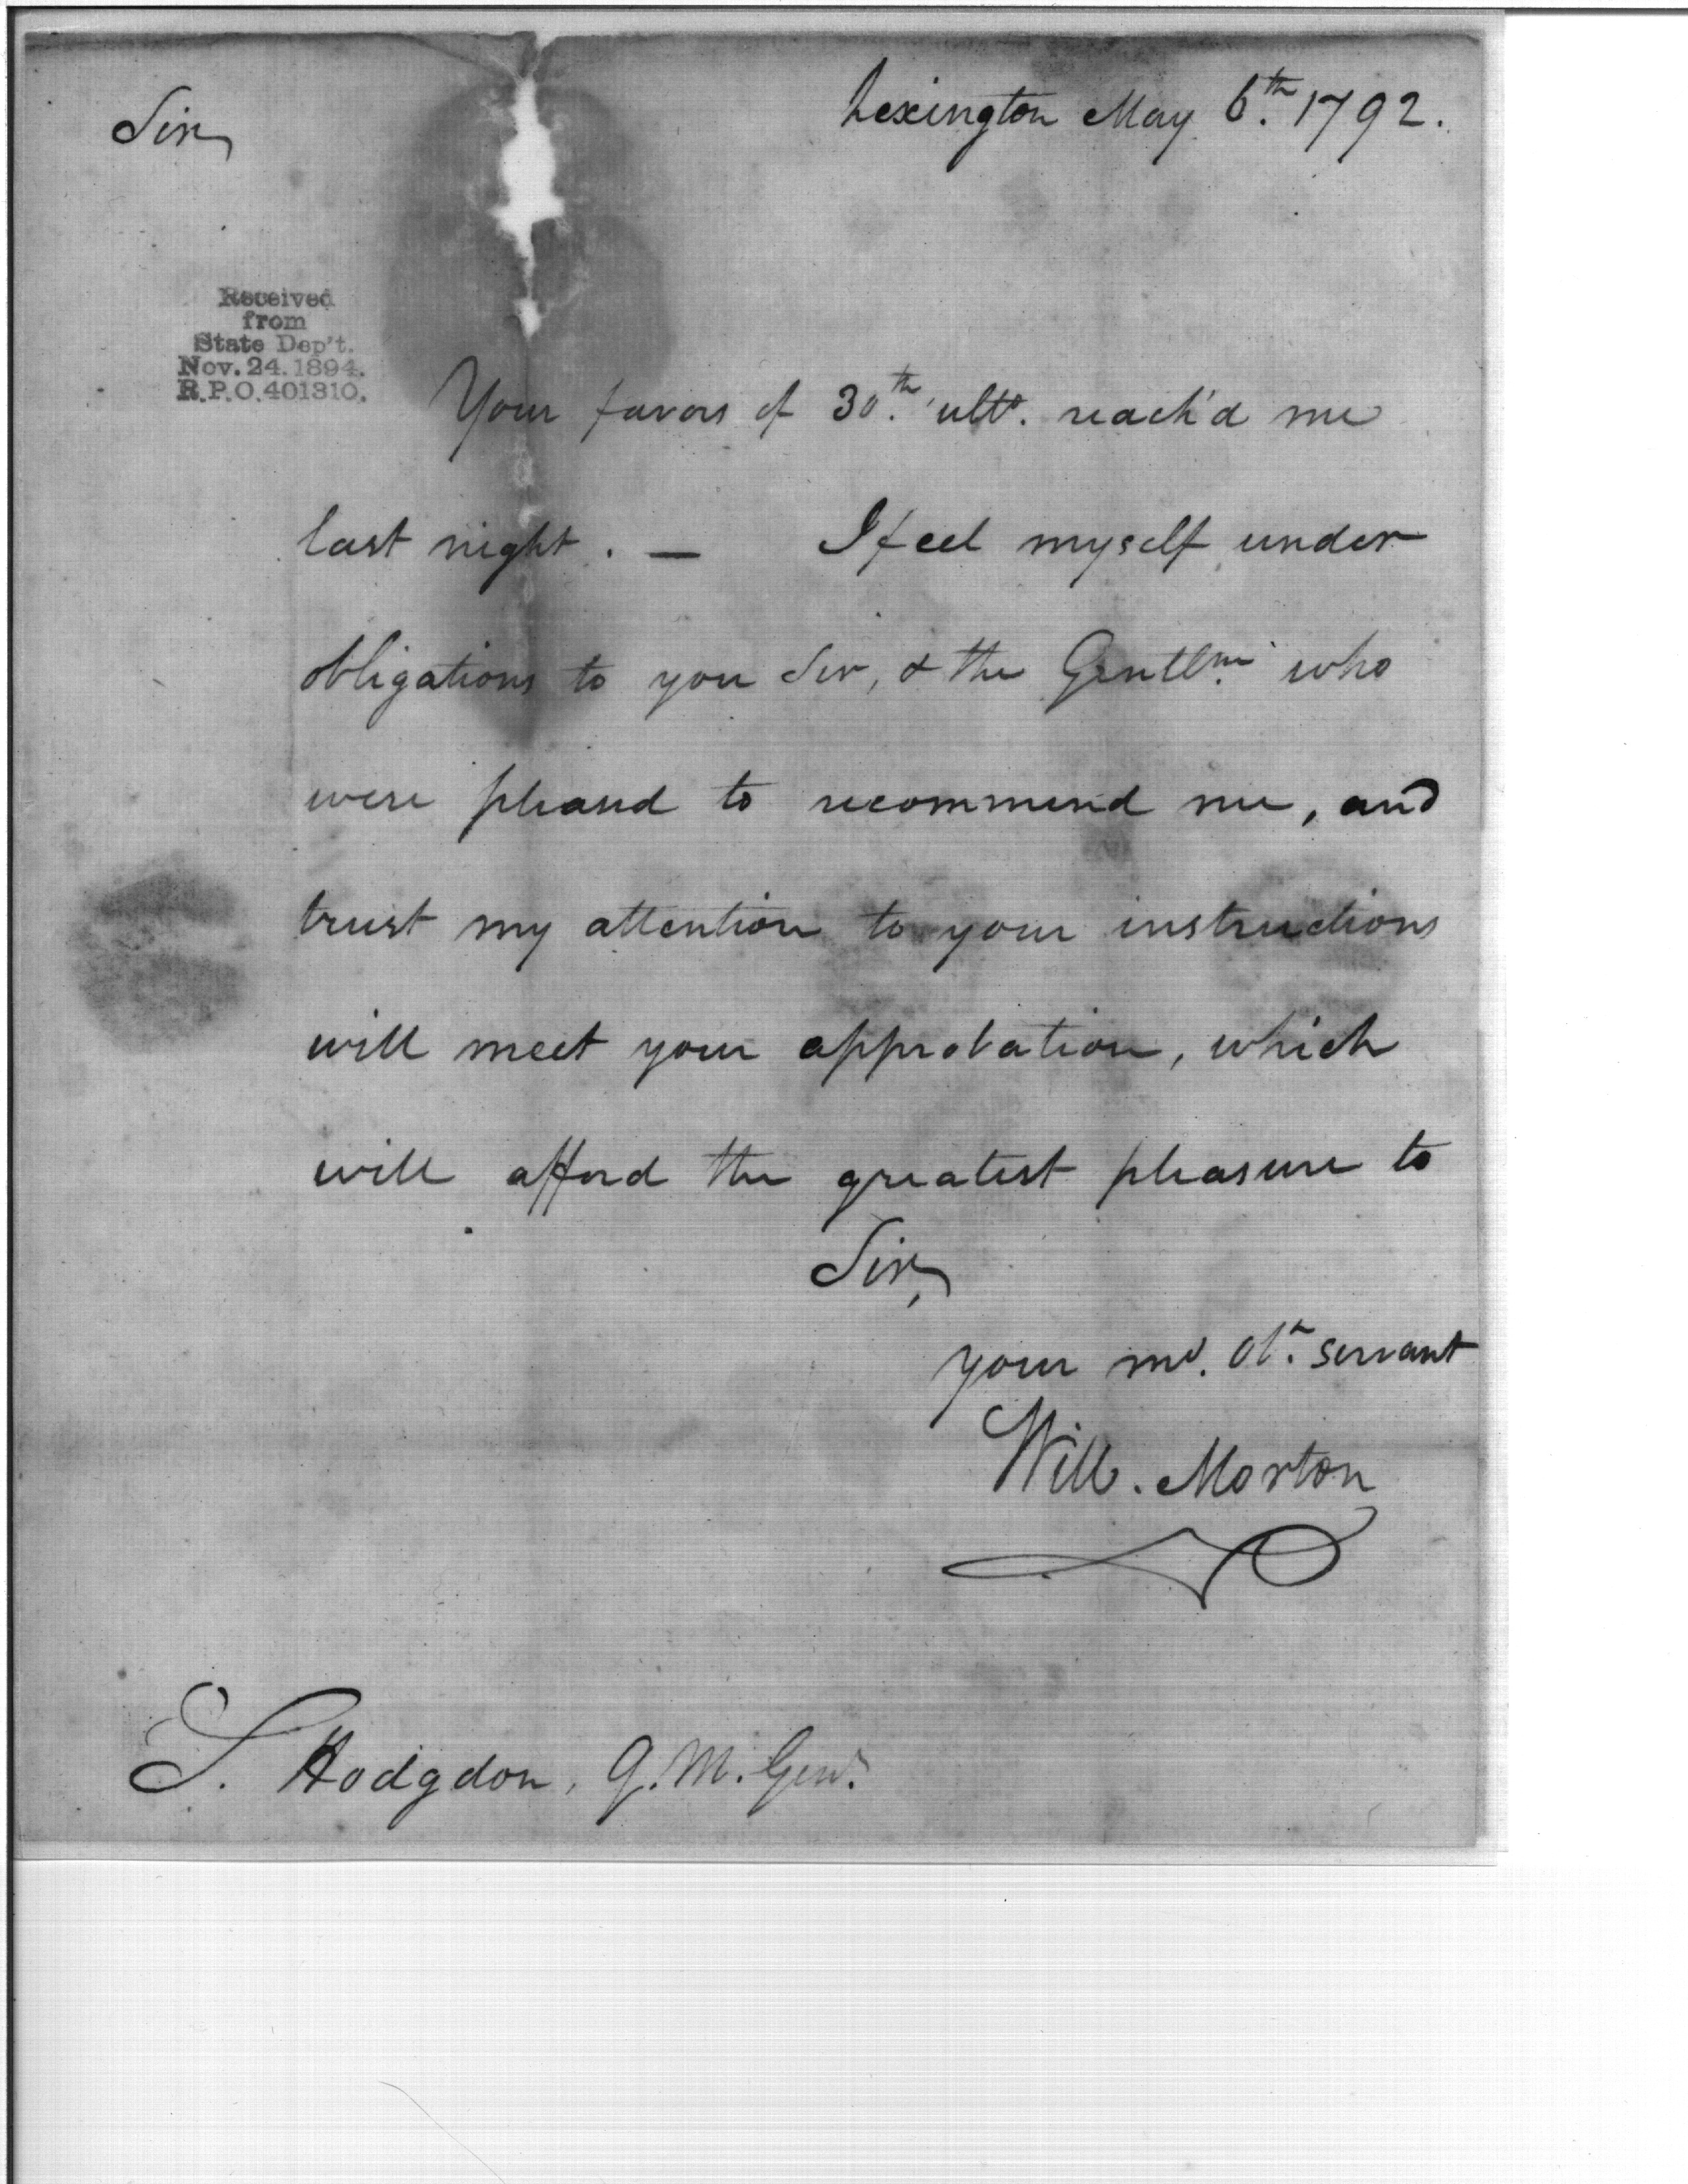 Lexington May 6th. 1792.
Sir,
Received
from
State Dep't.
Nov. 24. 1894.
R.P.O. 401310.
Your favors of 30th. ulto. reach'd me
last night. — I feel myself under
obligations to you Sir, & the Gentlmn. who
were pleased to recommend me, and
trust my attention to your instructions
will meet your approbation, which
will afford the greatest pleasure to
Sir,
your mo. obt. servant
Will. Morton
S. Hodgdon, Q.M. Genl.